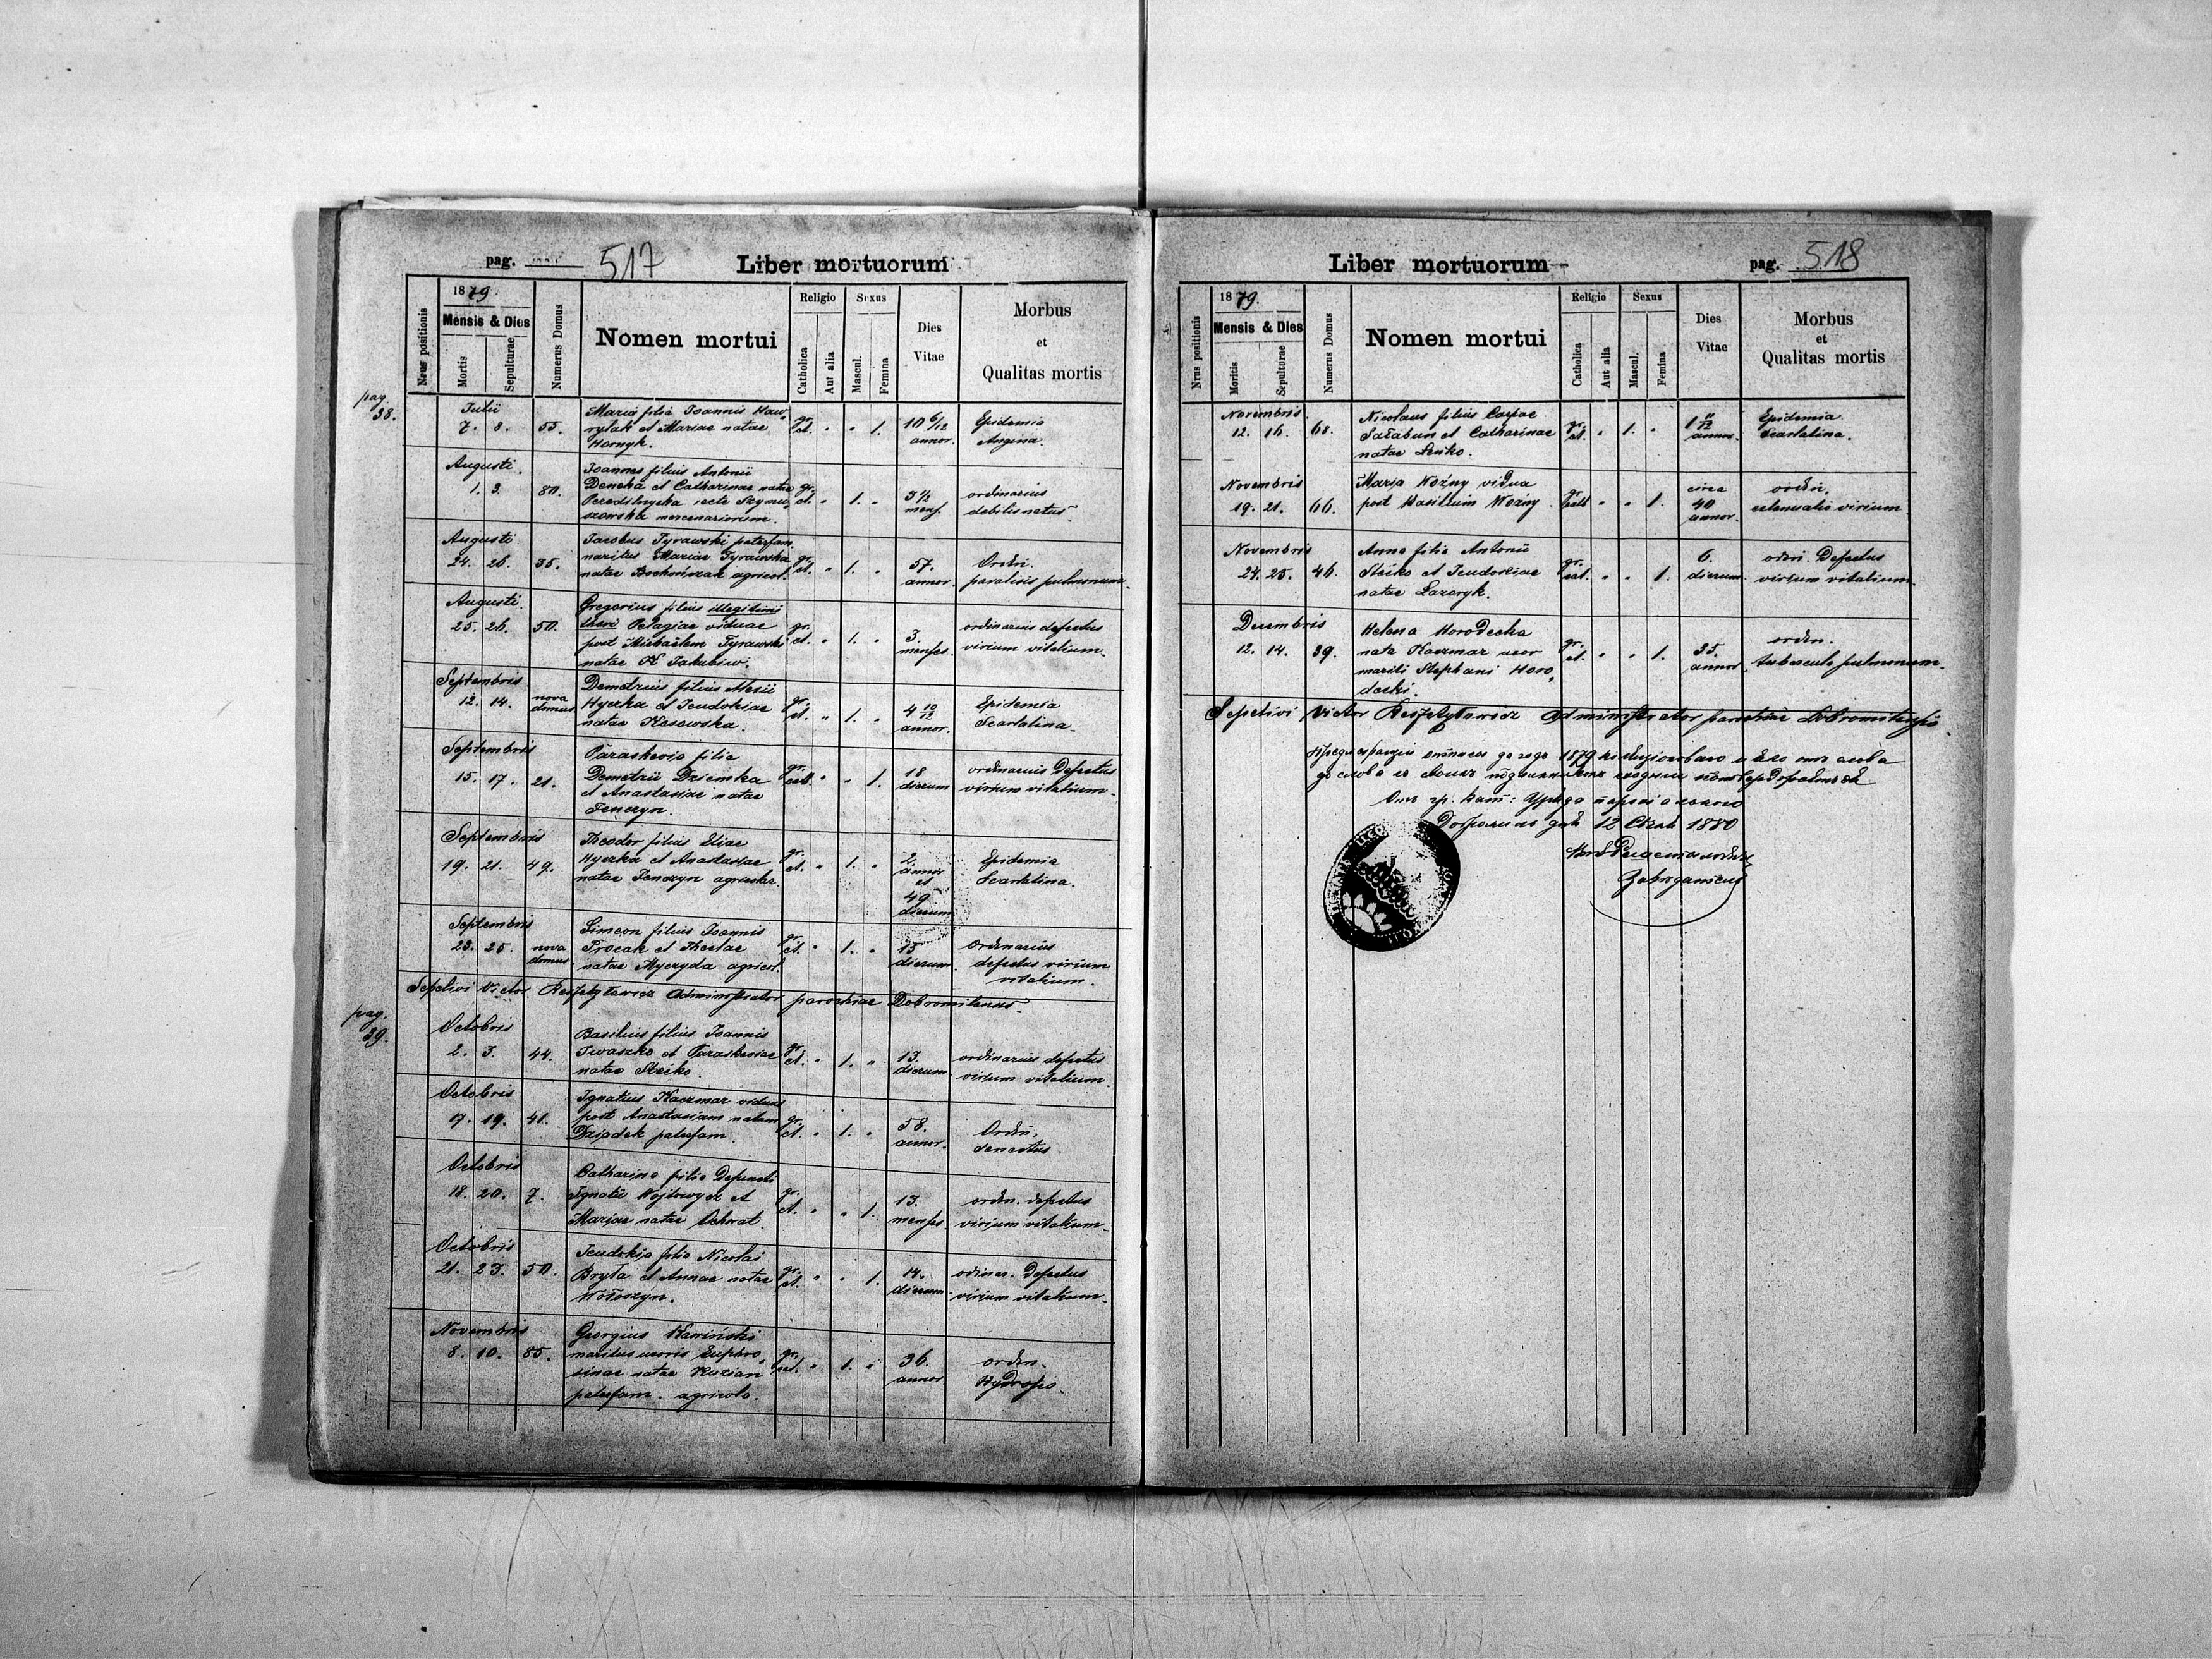 pag. 517 Liber mortuorum
Nrus positionis
1879.
Mensis & Dies
Mortis
Sepulturae
Numerus Domus
Nomen mortui
Religio
Catholica
Aut alia
Sexus
Mascul.
Femina
Dies
Vitae
Morbus
et
Qualitas mortis
pag.
38.
Julii
7. 8. 55.
Maria filia Joannis Haw
rylak et Mariae natae
Hornyk.
gr. ct. " " 1.
10 6/12
annor.
Epidemia
Angina.
Augusti.
1. 3. 80.
Joannes filius Antonii
Deneka et Catharinae natae
recte Szymu
szowska mercenariorum.
gr. ct. " 1. "
3 1/2
mens.
ordinarius
debilis natus
Augusti
24. 26. 35.
Jacobus Tyrawski paterfam.
maritus Mariae Tyrawska
natae Bochończak agricol.
gr. ct. " 1. "
57.
annor.
Ordin.
paralisis pulmonum.
Augusti.
25. 26. 50.
Gregorius filius illegitimi
thori Pelagiae viduae
post Michaëlem Tyrawski
natae Jakubiw.
gr. ct. " 1. "
3.
menses.
ordinarius defectus
virium vitalium.
Septembris
12. 14. nova
domus
Demetrius filius Alexii
Hyczka et Teudokiae
natae Kosowska.
gr. ct. " 1. "
4 10/12
annor.
Epidemia
Scarlatina.
Septembris
15. 17. 21.
Paraskevia filia
Demetrii Dziemka
et Anastasiae natae
Fenczyn.
gr. cat. " " 1.
18
dierum
ordinarius Defectus
virium vitalium.
Septembris
19. 21. 49.
Theodor filius Eliae
Hyczka et Anastasiae
natae Fenczyn agricolar.
gr. ct. " 1. "
2.
annor
et
49
dierum
Epidemia
Scarlatina.
Septembris
23. 25. nova
domus
Simeon filius Joannis
Procak et Theclae
natae Myczyda agricol.
gr. ct. " 1. "
15
dierum.
Ordinarius
defectus virium
vitalium.
Sepelivi Victor Reszetyłowicz Administrator parochiae Dobromilensis.
pag.
39.
Octobris
2. 3. 44.
Basilius filius Joannis
Iwaszko et Paraskeviae
natae Steiko.
gr. ct. " 1. "
13.
dierum
ordinarius defectus
virium vitalium.
Octobris
17. 19. 41.
Ignatius Kaczmar viduus
post Anastasiam natam
Dziadek paterfam.
gr. ct. " 1. "
58.
annor.
Ordin.
Octobris
18. 20. 7.
Catharina filia Defuncti
Ignatii Wojtowycz et
Mariae natae Ochnat.
gr. ct. " " 1.
13.
menses
ordin. defectus
virium vitalium.
Octobris
21. 23. 50.
Teudokia filia Nicolai
Bryła et Annae natae
Wołoszyn.
gr. ct. " " 1.
14.
dierum
ordinar. Defectus
virium vitalium.
Novembris
8. 10. 85.
Georgius Kawiński
maritus uxoris Euphro
sinae natae Kuzian
paterfam. agricola.
gr. cat. " 1. "
36.
annor
ordin.
Hydrops.
Liber mortuorum pag. 518
Nrus positionis
1879.
Mensis & Dies
Mortis
Sepulturae
Numerus Domus
Nomen mortui
Religio
Catholica
Aut alia
Sexus
Mascul.
Femina
Dies
Vitae
Morbus
et
Qualitas mortis
Novembris
12. 16. 68.
Nicolaus filius
Sałabun et Catharinae
natae Senko.
gr. ct. " 1. "
1 11/12
annor.
Epidemia
Scarlatina.
Novembris
19. 21. 66.
Maria Woźny vidua
post Basilium Woźny.
gr. cath " " 1.
circa
40
annor.
ordin.
extenuatio virium
Novembris
24. 25. 46.
Anna filia Antonii
Steiko et Teudokiae
natae Lazoryk.
gr. cat. " " 1.
6.
dierum.
ordin. Defectus
virium vitalium.
Decembris
12. 14. 39.
Helena Horodecka
nata Kaczmar uxor
mariti Stephani Horo
decki.
gr. ct. " " 1.
35.
annor.
ordin.
tubercula pulmonum.
Sepelivi Victor Reszetyłowicz Administrator parochiae Dobromilensis
1879
до слова
12 1880